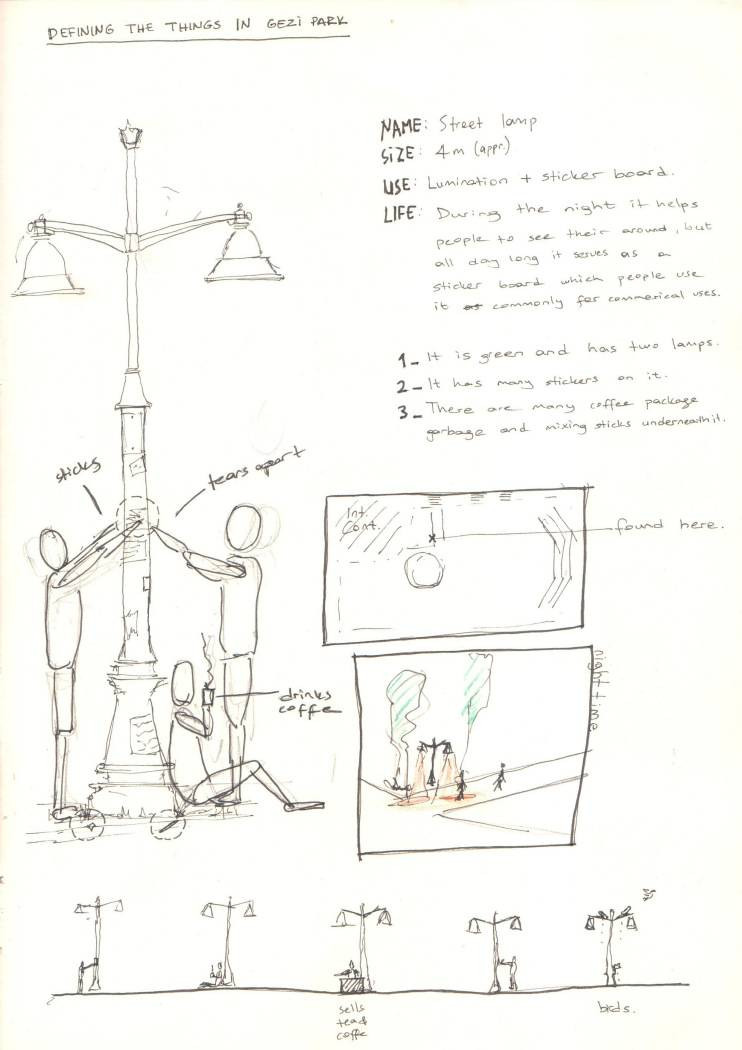 DEFINING THE THINGS IN GEZi PARK
NAME: Street lamp
SiZE: 4m (appr.)
USE: Lumination + sticker board.
LIFE: During the night it helps
people to see their around, but
all day long it serves as a
sticker board which people use
it as commonly for commerical uses.
1_ It is green and has two lamps.
2_ It has many stickers on it.
3_ There are many coffee package
garbage and mixing sticks underneath it.
sticks
tears apart
Int.
Cont.
found here.
drinks
coffe
night time
sells
tea &
coffe
birds.